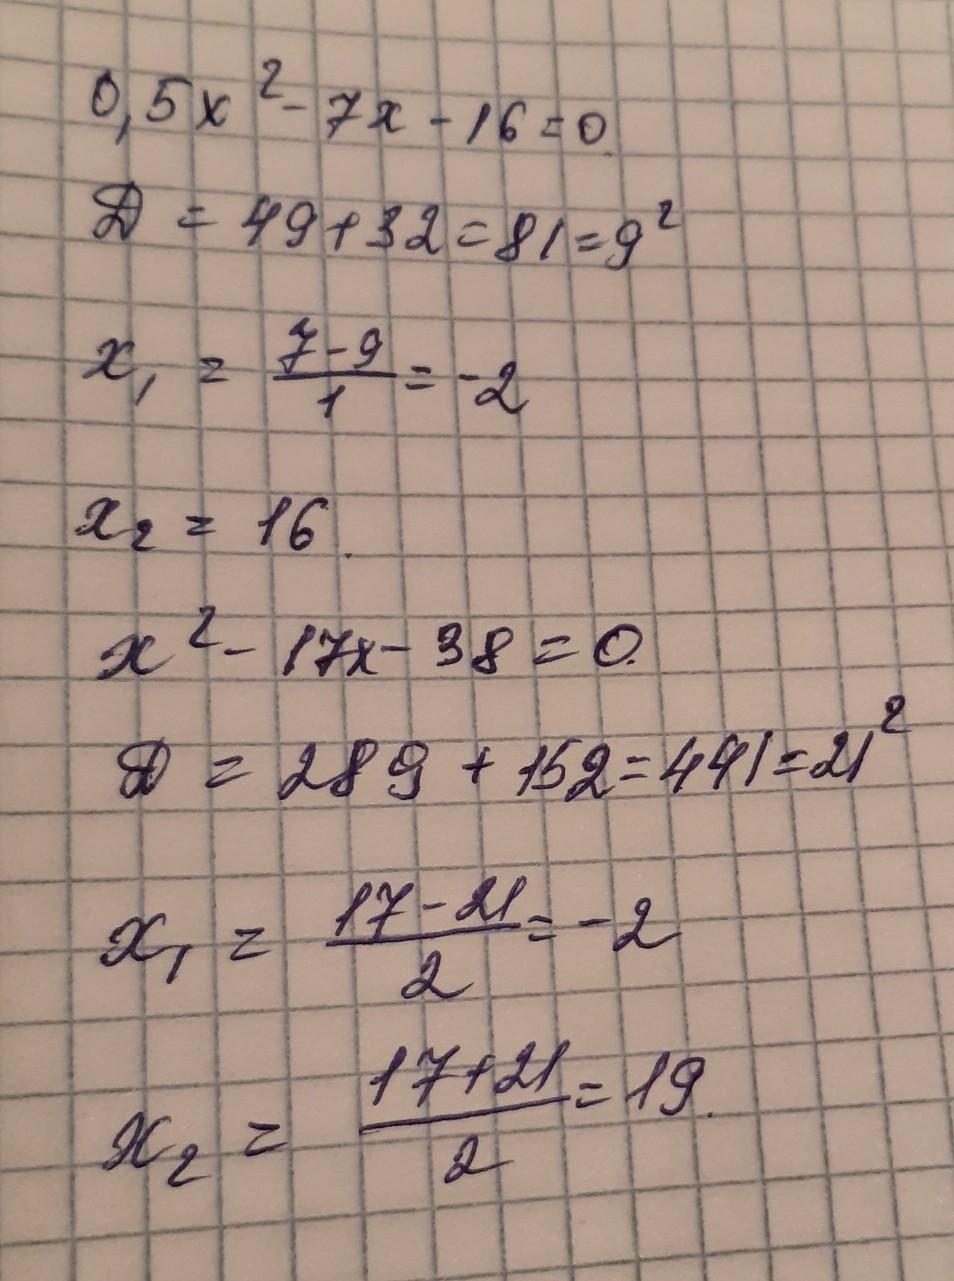 0,5x² - 7x - 16 = 0.
D = 49 + 32 = 81 = 9²
x₁ = (7 - 9)/1 = -2
x₂ = 16.
x² - 17x - 38 = 0.
D = 289 + 152 = 441 = 21²
x₁ = (17 - 21)/2 = -2
x₂ = (17 + 21)/2 = 19.